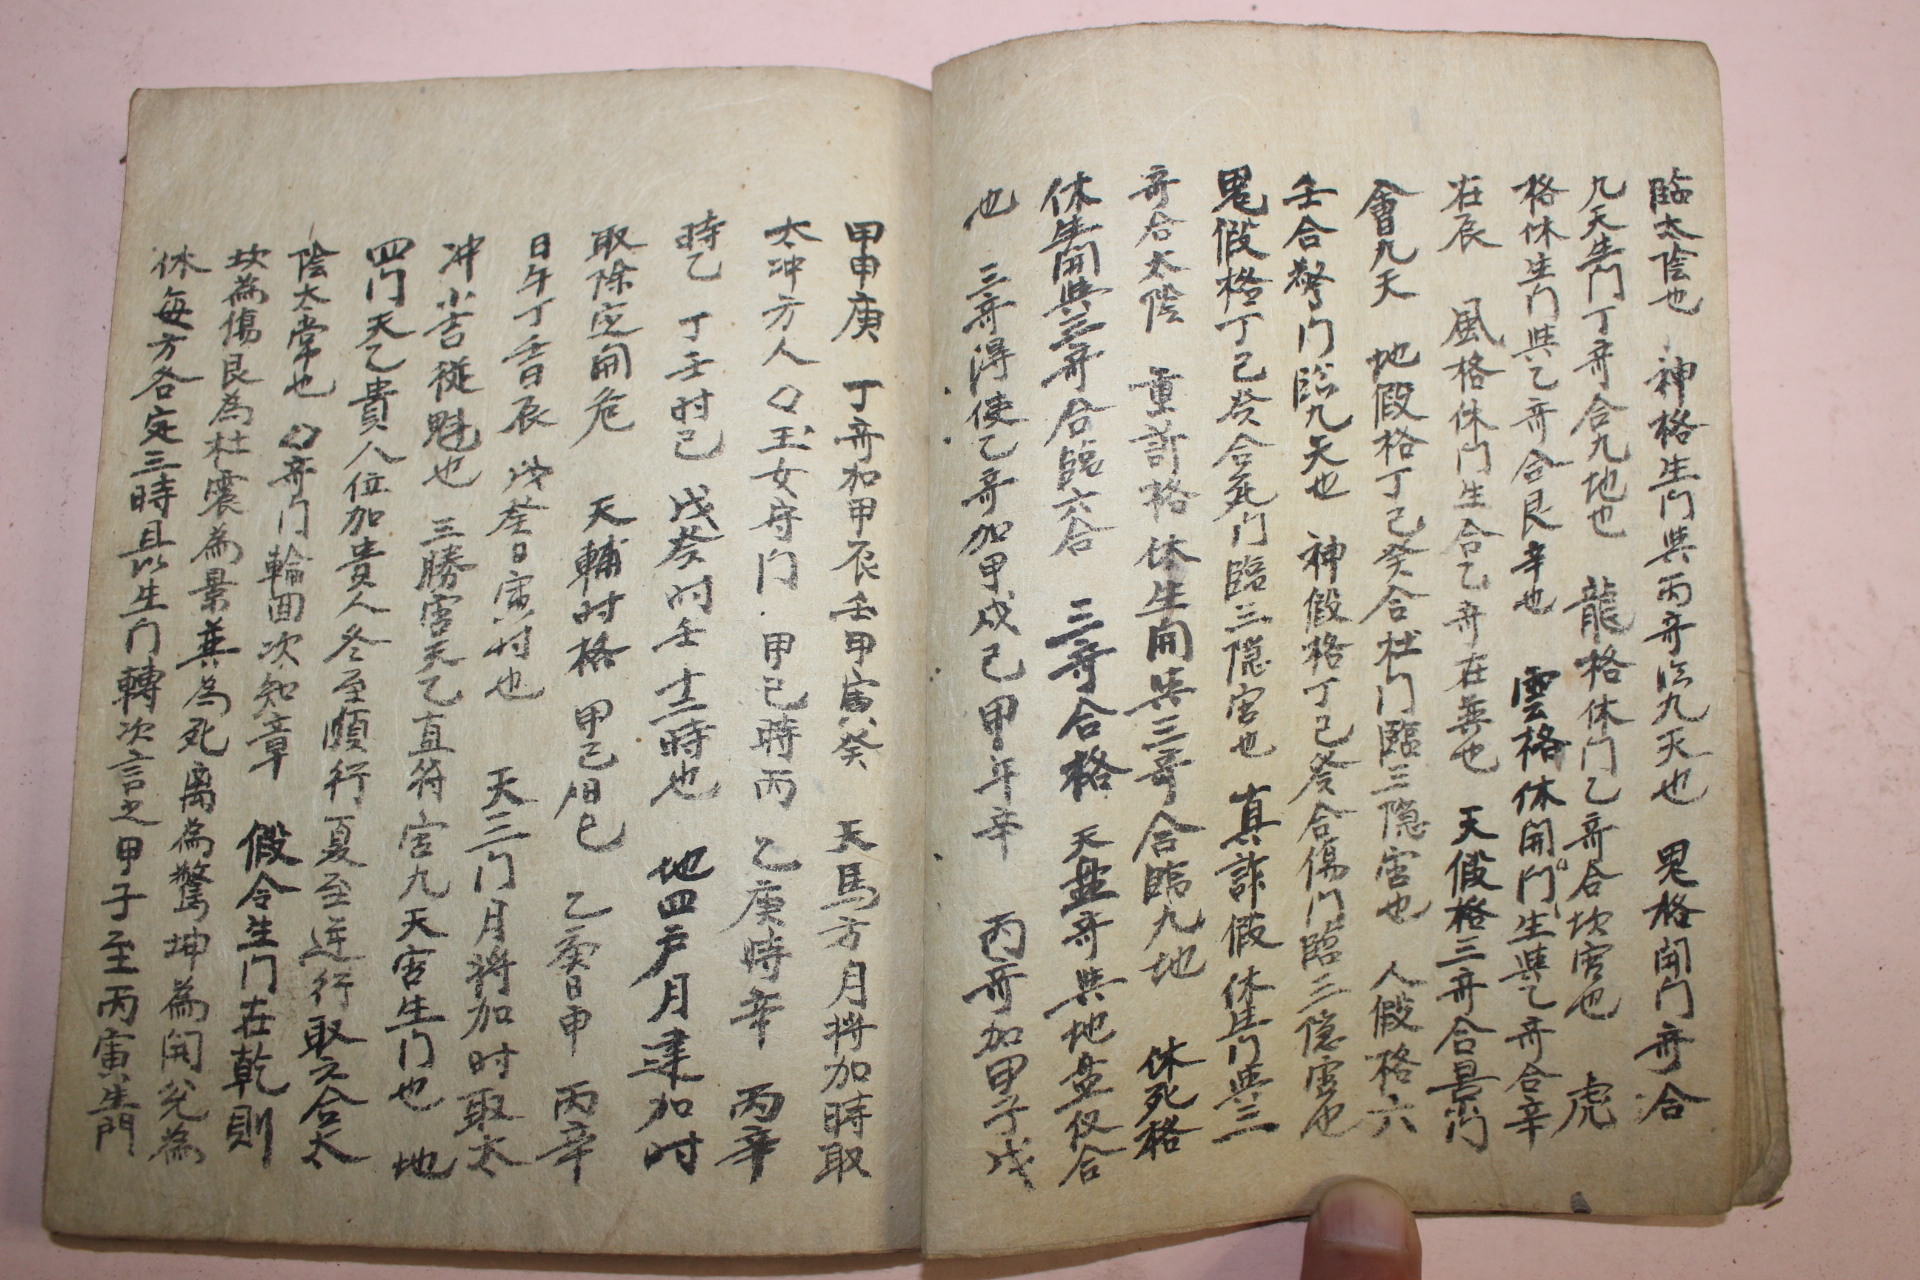 臨太陰也 神格生门與丙奇临九天也 鬼格開门奇合
九天生门丁奇合九地也 龍格休门乙奇合坎宮也 虎
格休生门與乙奇合艮辛也 雲格休開门生與乙奇合辛
在辰 風格休门生合乙奇在巽也 天假格三奇合景门
會九天 地假格丁己癸合杜门臨三隐宮也 人假格六
壬合驚门臨九天也 神假格丁己癸合傷门臨三隐宮也
鬼假格丁己癸合死门臨三隐宮也 真詐假休生门與三
奇合太陰 重詐格休生開與三奇合臨九地 休死格
休生開與三奇合臨六合 三奇合格 天盘奇與地盘仪合
也 三奇得使乙奇加甲戌己甲午辛 丙奇加甲子戊
甲申庚 丁奇加甲辰壬甲寅癸 天馬方月将加時取
太冲方人 〇玉女守门 甲己時丙 乙庚時辛 丙辛
時乙 丁壬时己 戊癸时壬 十二時也 地四户月建加时
取除定開危 天輔时格 甲己日巳 乙庚日申 丙辛
日午丁壬日辰 戊癸日寅时也 天三门月将加时取太
冲小吉從魁也 三勝宮天乙直符宮九天宮生门也 地
四门天乙貴人位加貴人冬至順行夏至逆行取六合太
陰太常也 〇奇门輪回次知章 假令生门在乾則
坎為傷艮為杜震為景巽為死离為驚坤為開兌為
休每方各定三時且以生门轉次言之甲子至丙寅生門